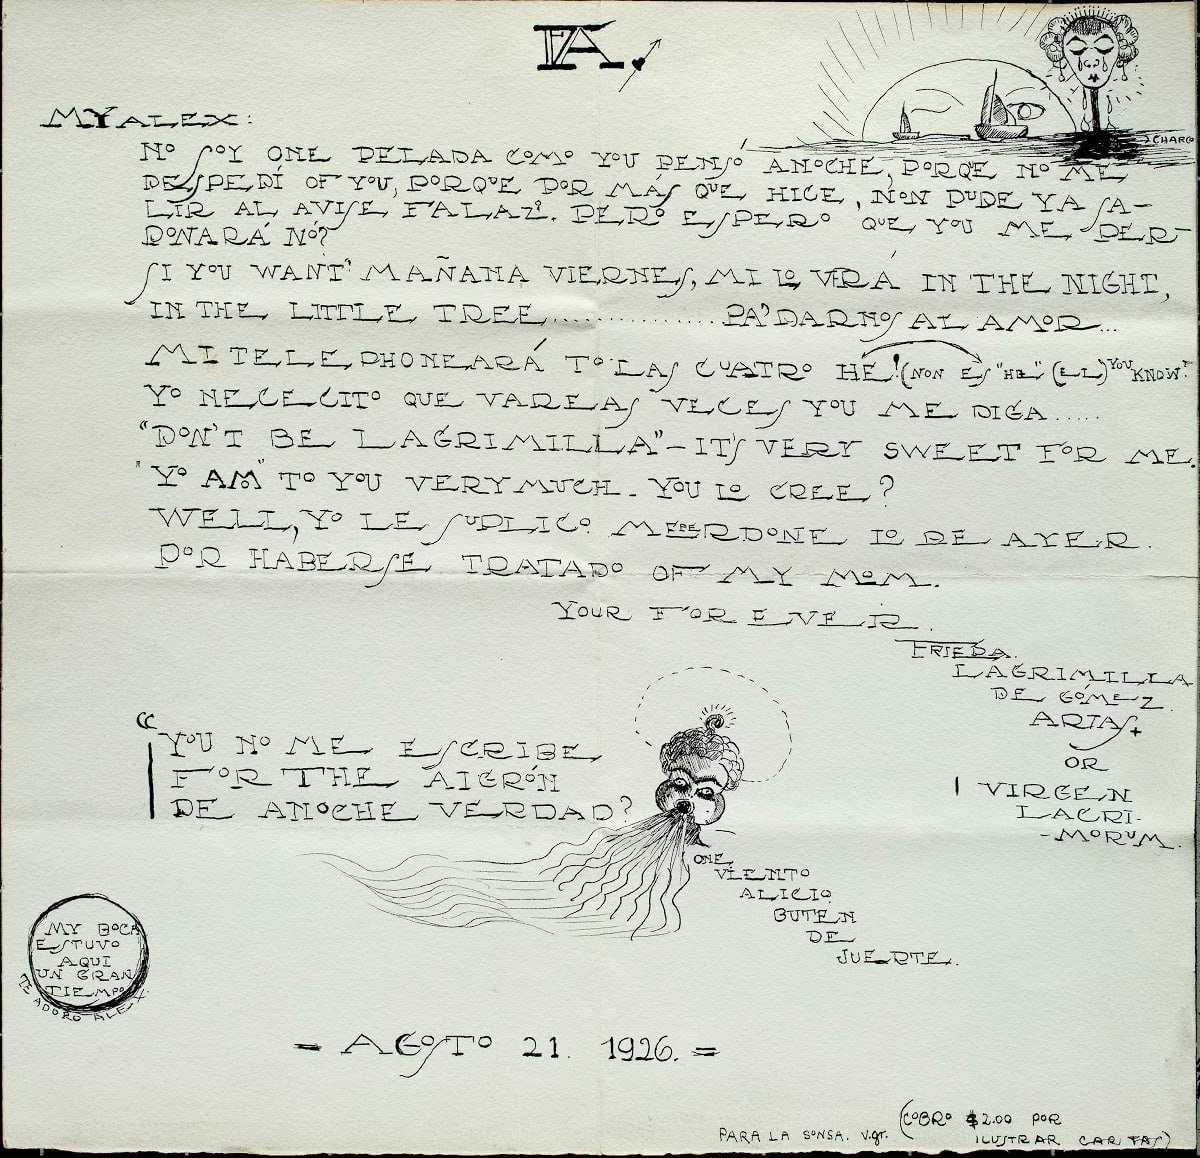 FA
MY ALEX:
CHARCO
NO SOY ONE PELADA COMO YOU PENSÓ ANOCHE, PORQE NO ME
DESPEDÍ OF YOU, PORQUE POR MÁS QUE HICE, NON PUDE YA SA-
LIR AL AVISE FALAZ?. PERO ESPERO QUE YOU ME PER-
DONARÁ NÓ?
SI YOU WANT? MAÑANA VIERNES, MI LO VRÁ IN THE NIGHT,
IN THE LITTLE TREE............ PA' DARNOS AL AMOR...
MI TELEPHONEARÁ TO LAS CUATRO HE! (NON ES "HE" (EL) YOU KNOW?
YO NECECITO QUE VAREAS VECES YOU ME DIGA.....
"DON'T BE LAGRIMILLA" - IT'S VERY SWEET FOR ME.
"YO AM" TO YOU VERY MUCH. YOU LO CREE?
WELL, YO LE SUPLICO MEPERDONE LO DE AYER.
POR HABERSE TRATADO OF MY MOM.
YOUR FOR EVER.
FRIEDA.
LAGRIMILLA
DE GÓMEZ
ARIAS
OR
VIRGEN
LACRI-
-MORUM.
"YOU NO ME ESCRIBE
FOR THE AIGRÓN
DE ANOCHE VERDAD?
ONE
VIENTO
ALICIO
BUTEN
DE
JUERTE.
MY BOCA
ESTUVO
AQUI
UN GRAN
TIEMPO
TE ADORO ALEX.
= AGOSTO 21. 1926. =
PARA LA SONSA. V.GT. (COBRO $2.00 POR
ILUSTRAR CARTAS)